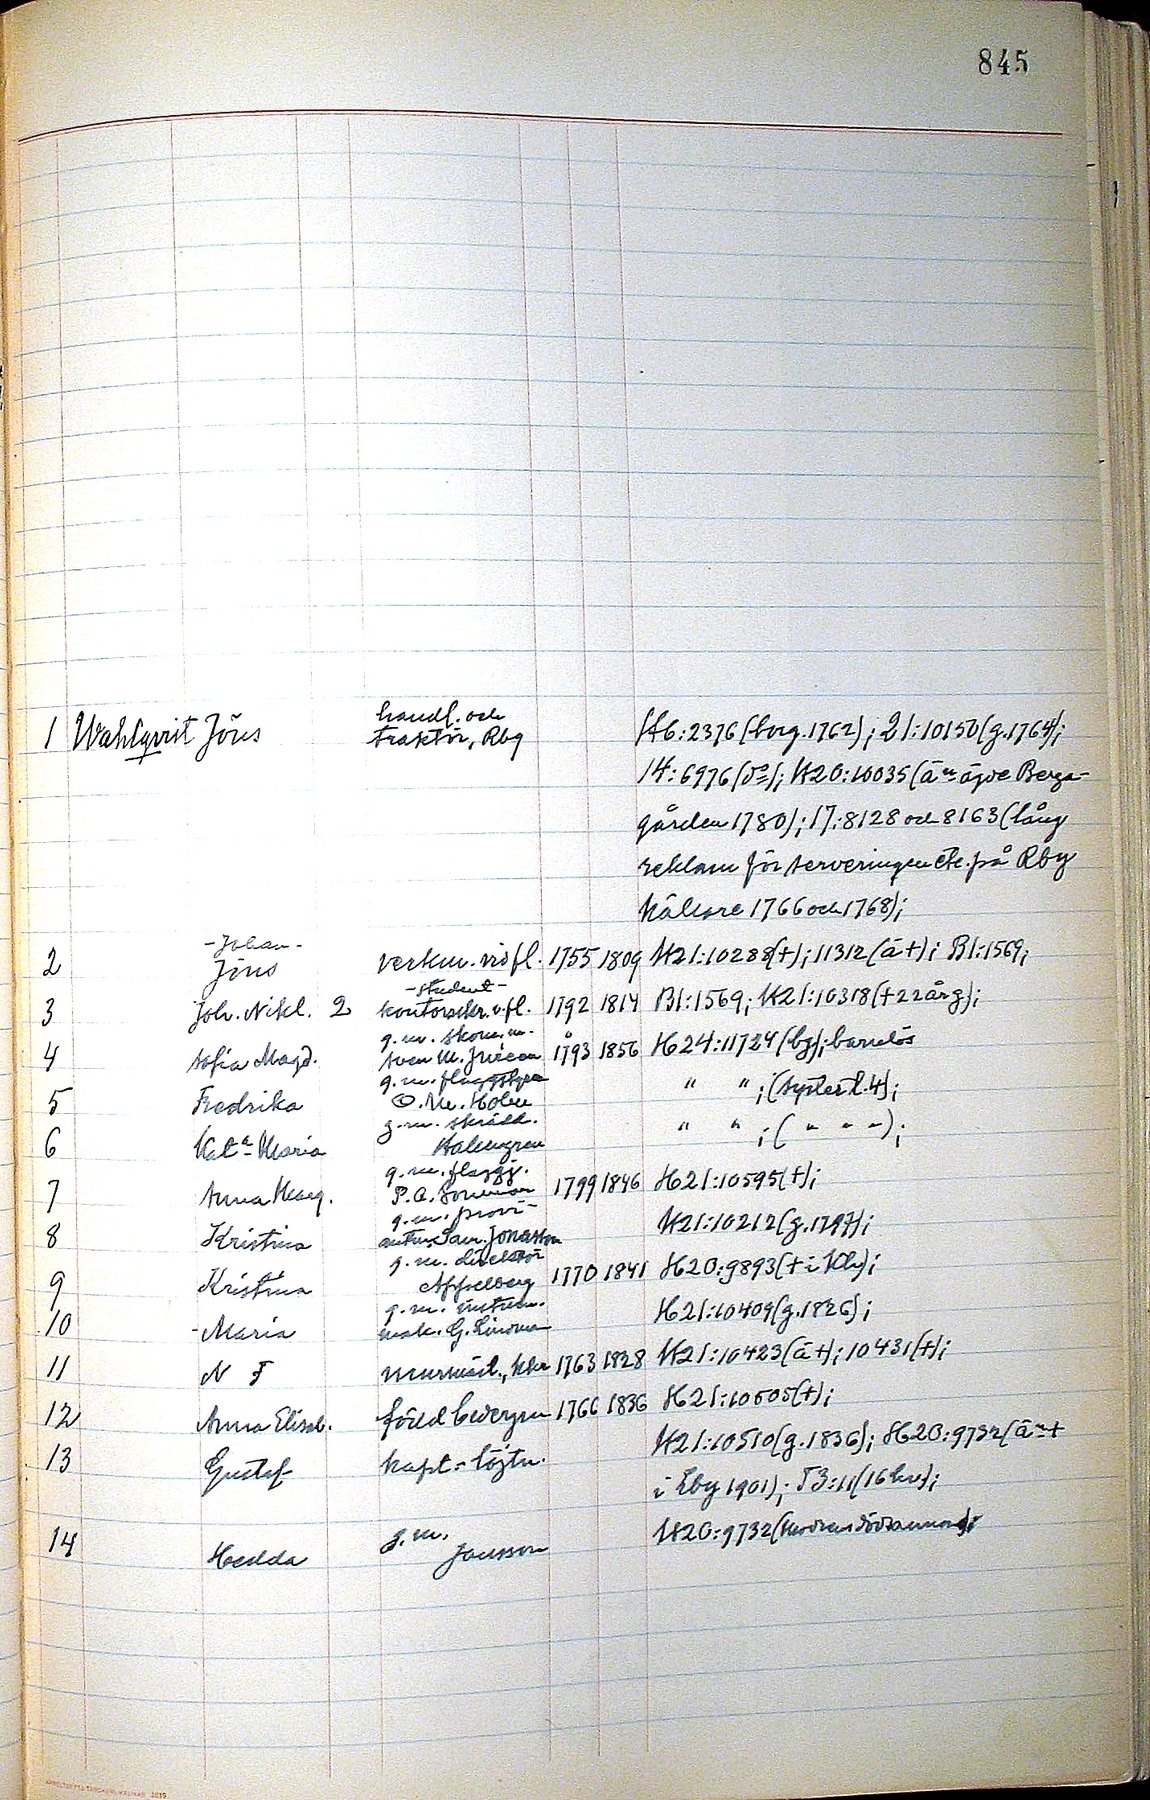 845
1 Wahlqvist Jöns handl. och
traktör, Rbg H6:2376 (borg. 1762); 21:10150 (g. 1764);
14:6976 (do); H20:10035 (än ägde Berga-
gården 1780); 17:8128 och 8163 (lång
reklam för serveringen etc. på Rby
källare 1766 och 1768);
2 -Johan-
Jöns verkm. vid fl. 1755 1809 H21:10288 (+); 11312 (ä +); B1:1569;
3 Joh. Nikl. 2 -student-
kontorsskr. v. fl. 1792 1814 B1:1569; H21:10318 (+ 22 årg);
4 Sofia Magd. g. m. skom. m.
Sven M. 1793 1856 H24:11724 (bg); barnlös
5 Fredrika g. m.
O. M. Holm " " ; (syster t. 4);
6 Kata Maria g. m. skrädd.
Holmgren " " ; ( " " " );
7 Anna Marg. g. m. flaggj.
P. A. 1799 1846 H21:10595 (+);
8 Kristina g. m. provi-
Jonasson H21:10212 (g. 1797);
9 Kristina g. m. direktör
Appelberg 1770 1841 H20:9893 (+ i Khr);
10 -Maria g. m. instrum.
mak. G. Lindman H21:10409 (g. 1826);
11 N F murmäst., Khr 1763 1828 H21:10423 (ä +); 10431 (+);
12 Anna Elisab. född Cedergren 1766 1836 H21:10505 (+);
13 Gustaf kapt.-löjtn. H21:10510 (g. 1836); H20:9732 (än +
i Eby 1901); T3:11 (16 );
14 Hedda g. m.
Jonsson H20:9732 (